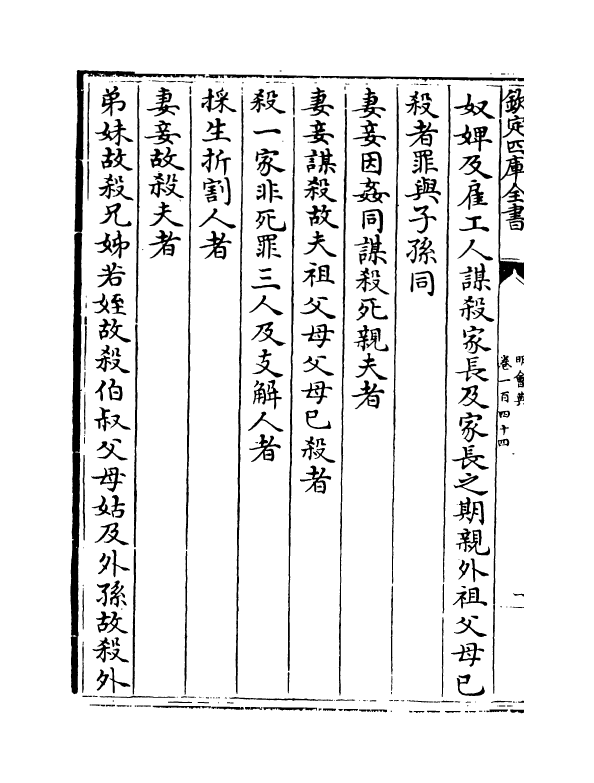 欽定四庫全書
明會典
卷一百四十四
一
奴婢及雇工人謀殺家長及家長之期親外祖父母已
殺者罪與子孫同
妻妾因姦同謀殺死親夫者
妻妾謀殺故夫祖父母父母已殺者
殺一家非死罪三人及支解人者
採生折割人者
妻妾故殺夫者
弟妹故殺兄姊若姪故殺伯叔父母姑及外孫故殺外